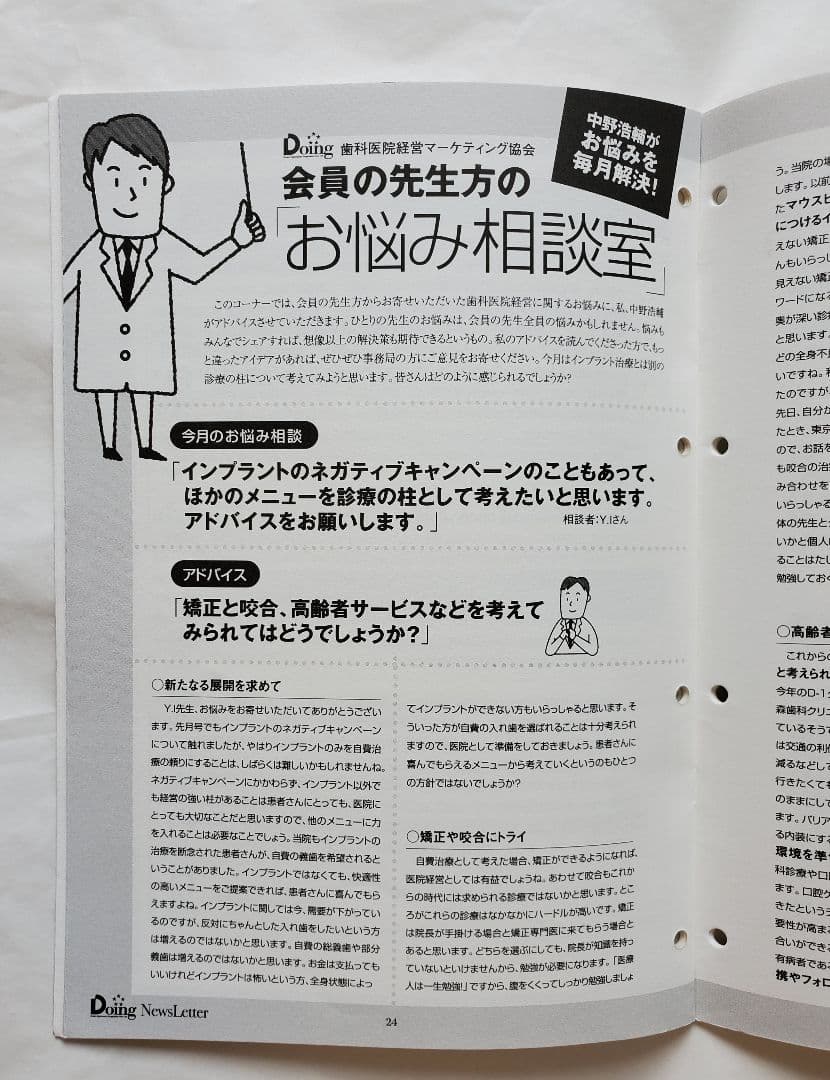 中野浩輔が
お悩みを
毎月解決!
Doing 歯科医院経営マーケティング協会
会員の先生方の
「お悩み相談室」
このコーナーでは、会員の先生方からお寄せいただいた歯科医院経営に関するお悩みに、私、中野浩輔
がアドバイスさせていただきます。ひとりの先生のお悩みは、会員の先生全員の悩みかもしれません。悩みも
みんなでシェアすれば、想像以上の解決策も期待できるというもの。私のアドバイスを読んでくださった方で、もっ
と違ったアイデアがあれば、ぜひぜひ事務局の方にご意見をお寄せください。今月はインプラント治療とは別の
診療の柱について考えてみようと思います。皆さんはどのように感じられるでしょうか?
今月のお悩み相談
「インプラントのネガティブキャンペーンのこともあって、
ほかのメニューを診療の柱として考えたいと思います。
アドバイスをお願いします。」
相談者:Y.Iさん
アドバイス
「矯正と咬合、高齢者サービスなどを考えて
みられてはどうでしょうか?」
○新たなる展開を求めて
Y.I先生、お悩みをお寄せいただいてありがとうござい
ます。先月号でもインプラントのネガティブキャンペーン
について触れましたが、やはりインプラントのみを自費治
療の頼りにすることは、しばらくは難しいかもしれませんね。
ネガティブキャンペーンにかかわらず、インプラント以外で
も経営の強い柱があることは患者さんにとっても、医院に
とっても大切なことだと思いますので、他のメニューに力
を入れることは必要なことでしょう。当院もインプラントの
治療を断念された患者さんが、自費の義歯を希望されると
いうことがありました。インプラントではなくても、快適性
の高いメニューをご提案できれば、患者さんに喜んでもら
えますよね。インプラントに関しては今、需要が下がってい
るのですが、反対にちゃんとした入れ歯をしたいという方
は増えるのではないかと思います。自費の総義歯や部分
義歯は増えるのではないかと思います。お金は支払っても
いいけれどインプラントは怖いという方、全身状態によっ
てインプラントができない方もいらっしゃると思います。そ
ういった方が自費の入れ歯を選ばれることは十分考えられ
ますので、医院として準備をしておきましょう。患者さんに
喜んでもらえるメニューから考えていくというのもひとつ
の方針ではないでしょうか?
○矯正や咬合にトライ
自費治療として考えた場合、矯正ができるようになれば、
医院経営としては有益でしょうね。あわせて咬合もこれか
らの時代には求められる診療ではないかと思います。とこ
ろがこれらの診療はなかなかにハードルが高いです。矯正
は院長が手掛ける場合と矯正専門医に来てもらう場合と
あると思います。どちらを選ぶにしても、院長が知識を持っ
ていないといけませんから、勉強が必要になります。「医療
人は一生勉強!」ですから、腹をくくってしっかり勉強しましょ
Doing NewsLetter
24
う。当院の場
します。以前
たマウスピ
につけるイ
えない矯正
んもいらっし
見えない矯正
ワードになる
奥が深い診療
と思います。
どの全身不
いですね。
たのですが
先日、自分か
たとき、東京
ので、お話を
も咬合の治
み合わせを
いらっしゃる
体の先生と
いかと個人
ることはたし
勉強しておく
○高齢者
これからの
と考えられ
今年のD-1
森歯科クリニ
ているそうで
は交通の利
減るなどして
行きたくても
のままにして
ます。バリア
る内装にする
環境を準
科診療や口
ます。口腔ケ
きたという
要性が高ま
合いができ
有病者であ
携やフォロ